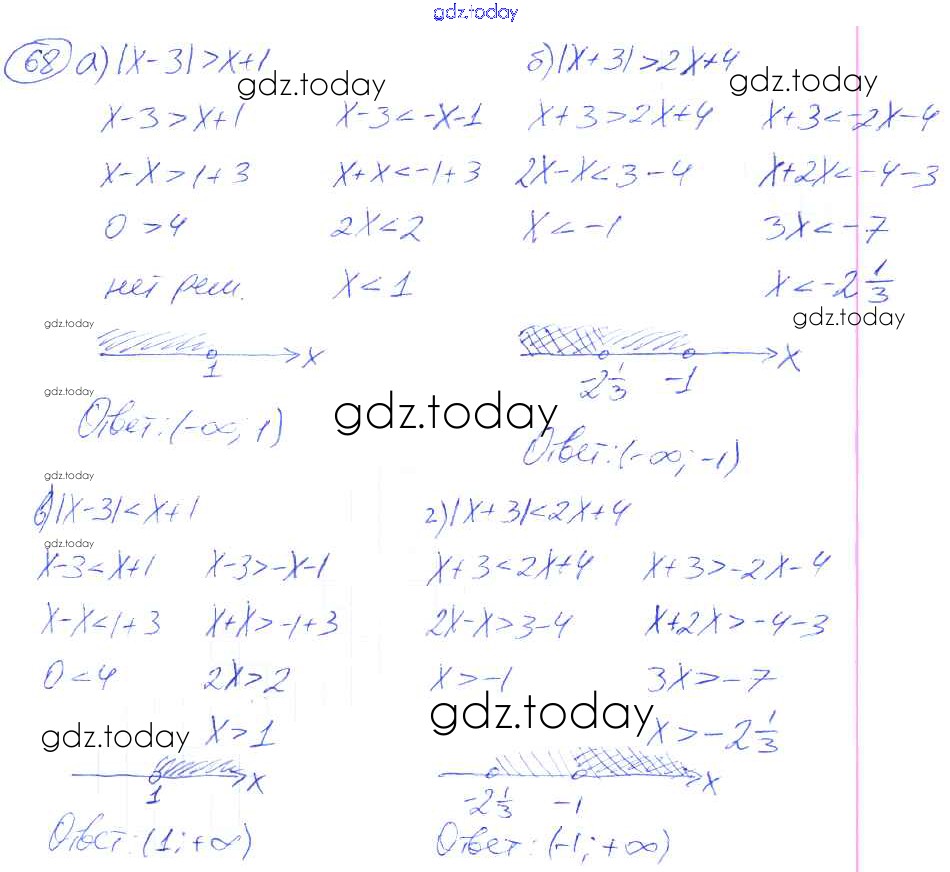 gdz.today
68 а) |x-3|>x+1 б) |x+3|>2x+4
gdz.today gdz.today
x-3>x+1 x-3<-x-1 x+3>2x+4 x+3<-2x-4
x-x>1+3 x+x<-1+3 2x-x<3-4 x+2x<-4-3
0>4 2x<2 x<-1 3x<-7
нет реш. x<1 x<-2 1/3
gdz.today gdz.today
1 x -2 1/3 -1 x
gdz.today
Ответ: (-∞; 1) gdz.today Ответ: (-∞; -1)
gdz.today
в) |x-3|<x+1 г) |x+3|<2x+4
gdz.today
x-3<x+1 x-3>-x-1 x+3<2x+4 x+3>-2x-4
x-x<1+3 x+x>-1+3 2x-x>3-4 x+2x>-4-3
0<4 2x>2 x>-1 3x>-7
gdz.today x>1 gdz.today x>-2 1/3
1 x -2 1/3 -1 x
Ответ: (1; +∞) Ответ: (-1; +∞)